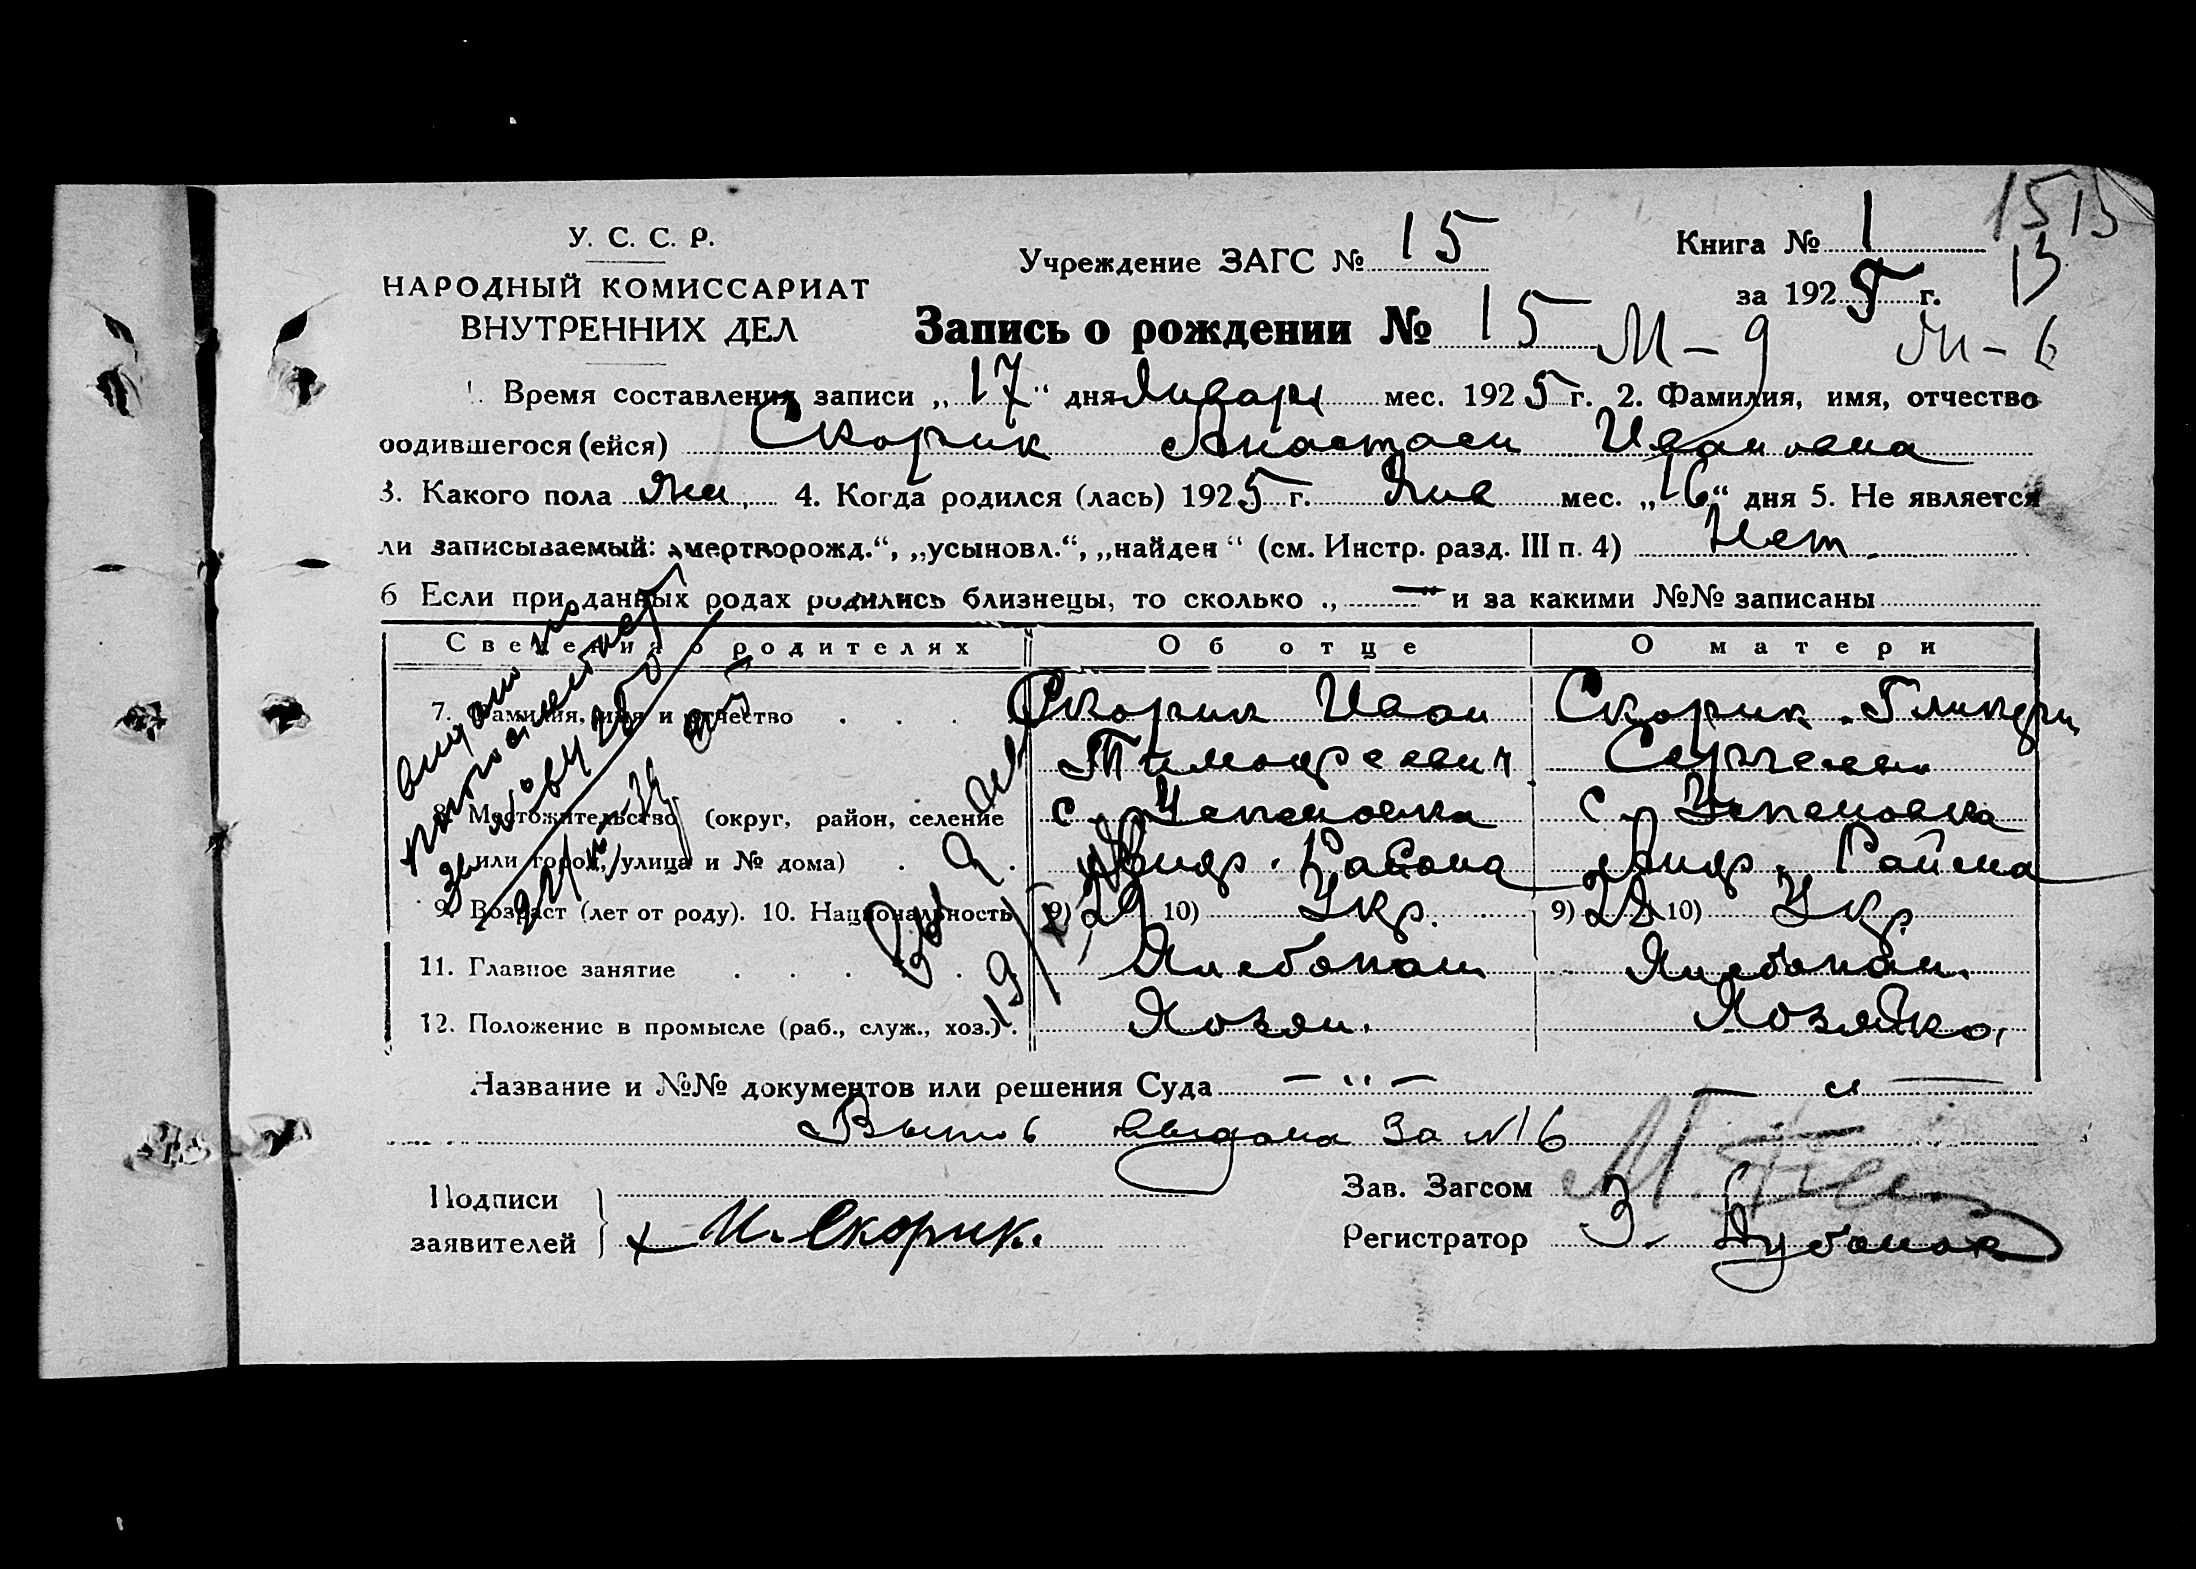 У. С. С. Р.
НАРОДНЫЙ КОМИССАРИАТ
ВНУТРЕННИХ ДЕЛ
Учреждение ЗАГС № 15
Книга № 1
15 15
за 1925 г.
13
Запись о рождении № 15
М - 9
М - 6
1. Время составления записи „17“ дня Января мес. 1925 г. 2. Фамилия, имя, отчество
родившегося (ейся) Скорик Анастаси Ивановна
3. Какого пола жен. 4. Когда родился (лась) 1925 г. Янв мес. „16“ дня 5. Не является
ли записываемый: „мертворожд.“, „усыновл.“, „найден“ (см. Инстр. разд. III п. 4) Нет.
6 Если при данных родах родились близнецы, то сколько „—“ и за какими №№ записаны
Сведения о родителях Об отце О матери
7. Фамилия, имя и отчество . . . Скорик Иван Скорик
Тимофеевич Сергеевн
8. Местожительство (округ, район, селение с. Успеновка с. Успеновка
или город, улица и № дома) . . . Района Района
9. Возраст (лет от роду). 10. Национальность 9) 29 10) Укр. 9) 28 10) Укр.
11. Главное занятие . . . . Хлебопаш. Хлебопаш.
12. Положение в промысле (раб., служ., хоз.) . Хозяи. Хозяйка,
Название и №№ документов или решения Суда — " — — " —
Выпис выдана за № 16
Подписи
заявителей
И. Скорик.
Зав. Загсом
Регистратор З.